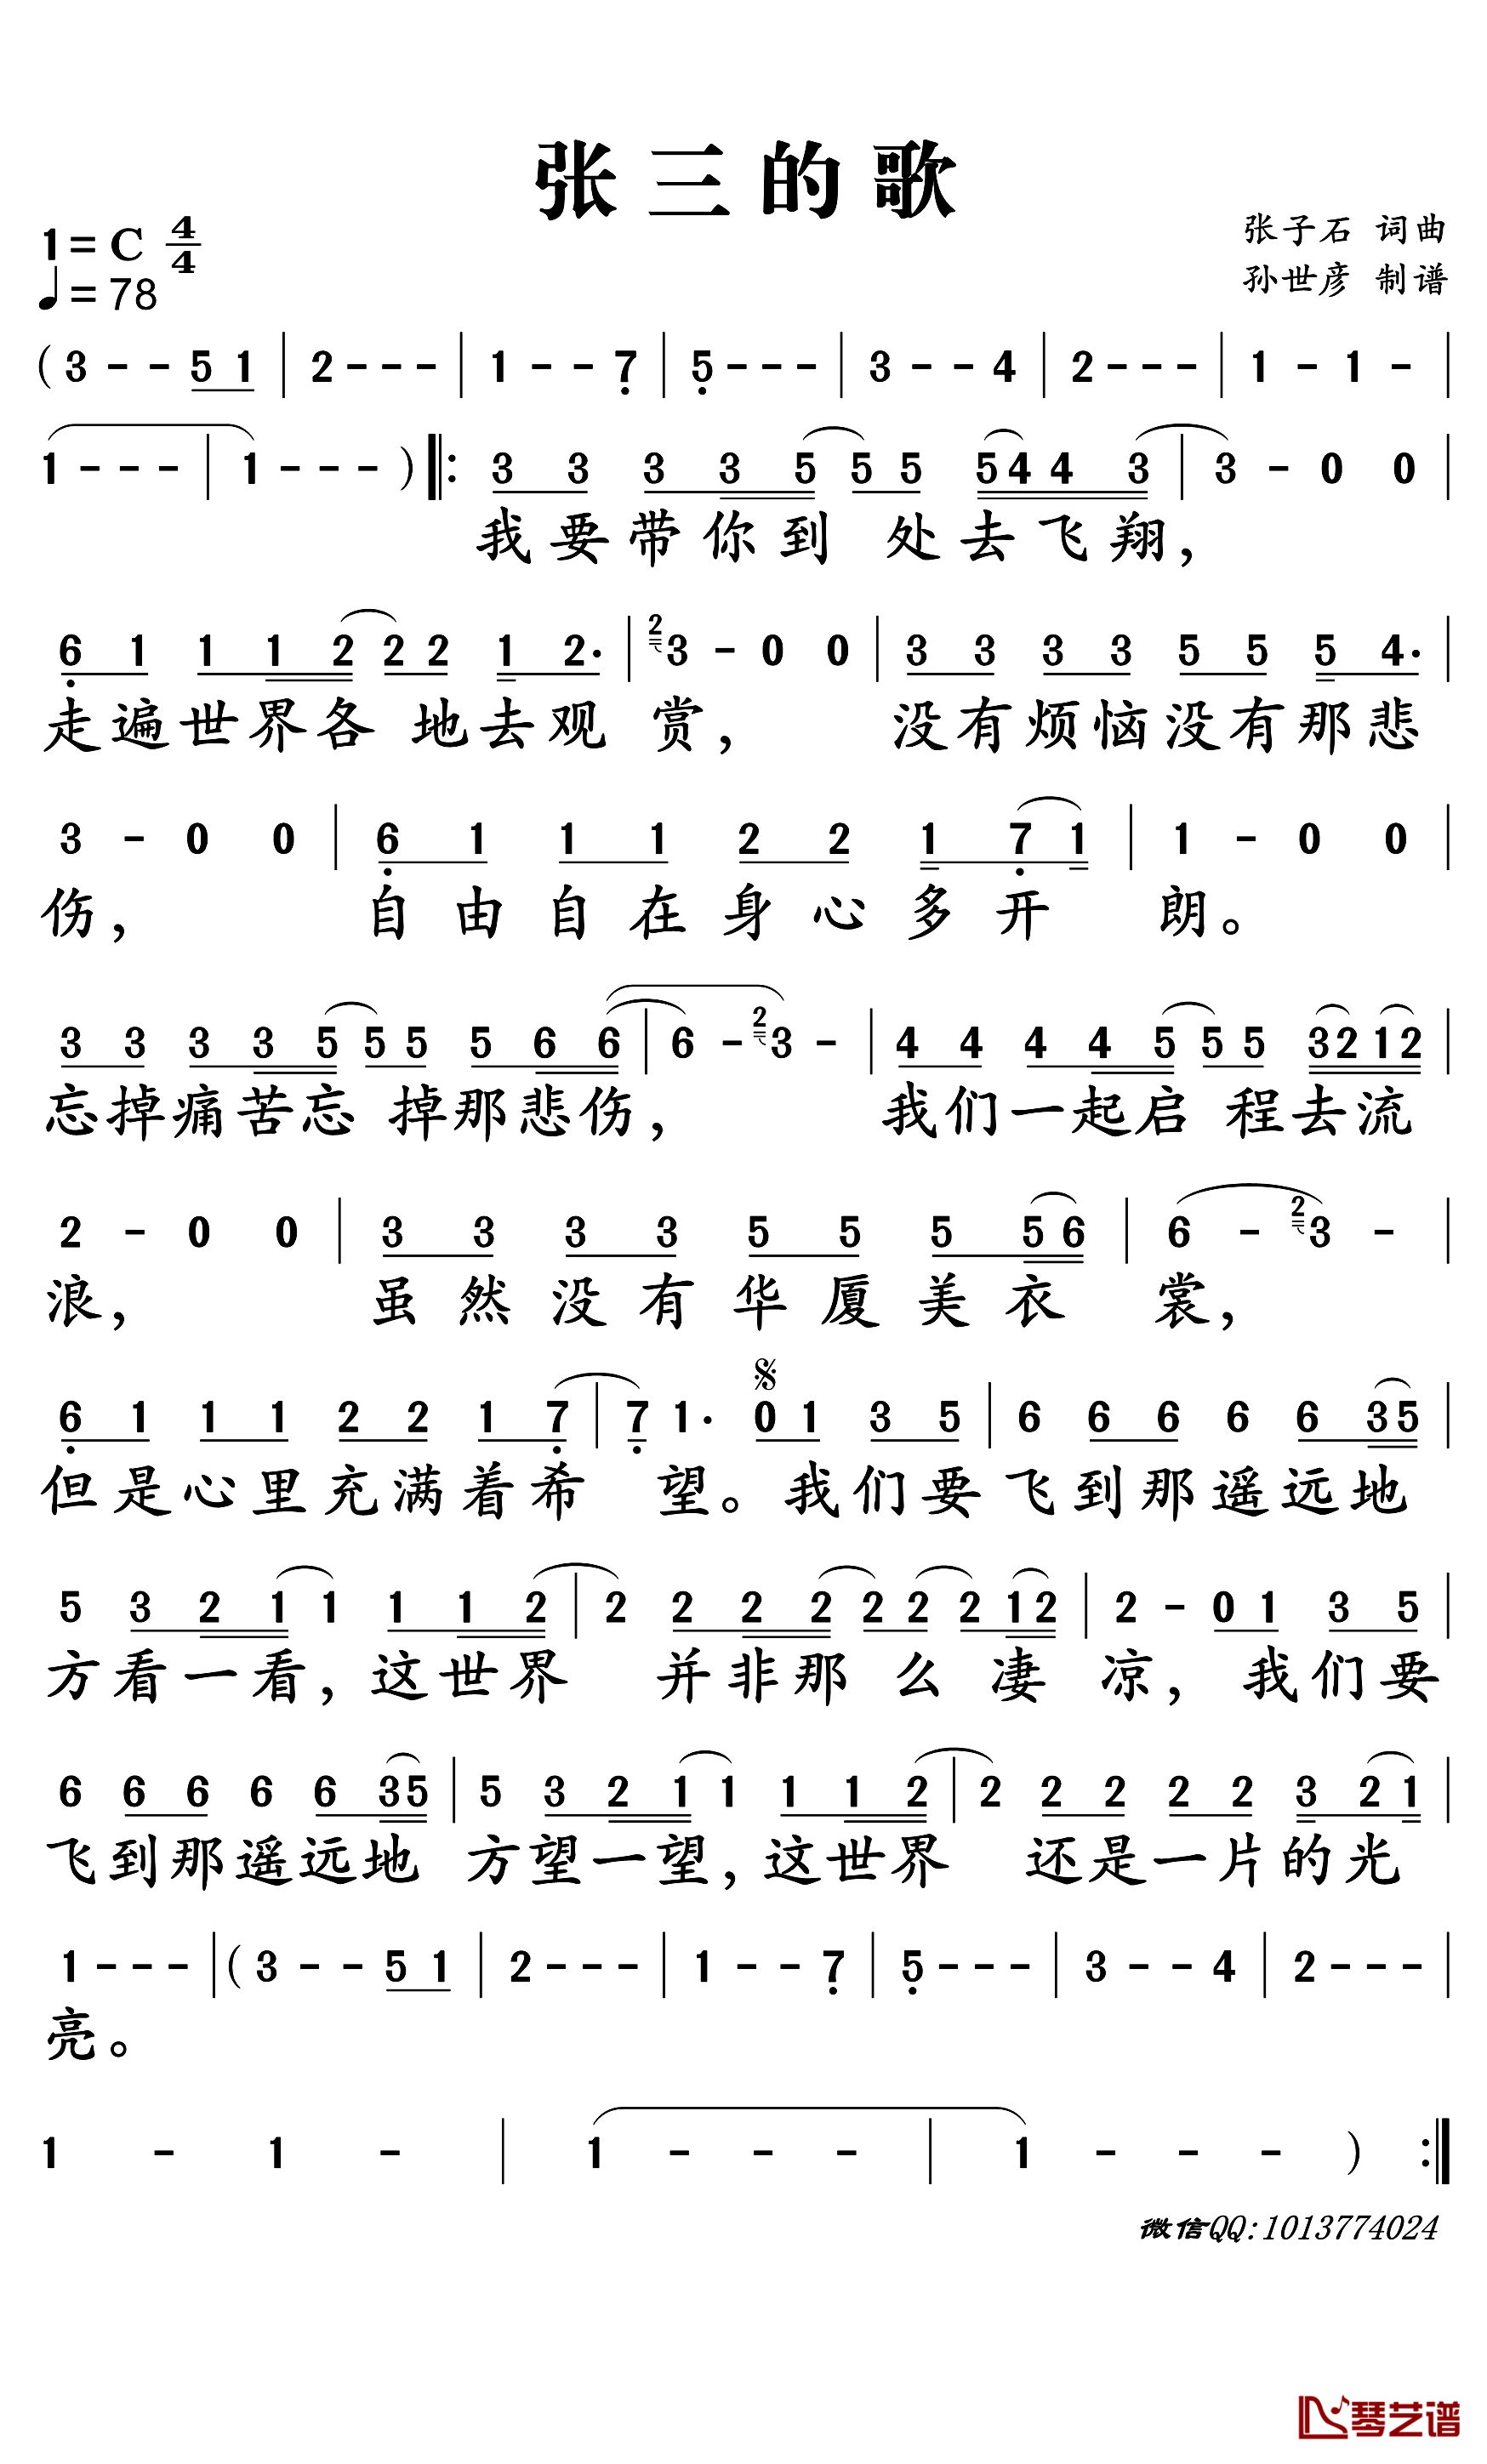 张三的歌
1=C 4/4
张子石 词曲
♩=78
孙世彦 制谱
( 3 - - 5 1 | 2 - - - | 1 - - 7̣ | 5̣ - - - | 3 - - 4 | 2 - - - | 1 - 1 - |
1 - - - | 1 - - - ) ‖: 3 3 3 3 5 5 5 5 4 4 3 | 3 - 0 0 |
我要带你到 处去飞翔，
6̣ 1 1 1 2 2 2 1 2· | 2 3 - 0 0 | 3 3 3 3 5 5 5 4· |
走遍世界各 地去观 赏， 没有烦恼没有那悲
3 - 0 0 | 6̣ 1 1 1 2 2 1 7̣ 1 | 1 - 0 0 |
伤， 自由自在身心多开 朗。
3 3 3 3 5 5 5 5 6 6 | 6 - 2 3 - | 4 4 4 4 5 5 5 3 2 1 2 |
忘掉痛苦忘 掉那悲伤， 我们一起启 程去流
2 - 0 0 | 3 3 3 3 5 5 5 5 6 | 6 - 2 3 - |
浪， 虽然没有华厦美衣 裳，
6̣ 1 1 1 2 2 1 7̣ | 7̣ 1· 𝄋 0 1 3 5 | 6 6 6 6 6 3 5 |
但是心里充满着希 望。我们要飞到那遥远地
5 3 2 1 1 1 1 2 | 2 2 2 2 2 2 2 1 2 | 2 - 0 1 3 5 |
方看一看，这世界 并非那么凄 凉，我们要
6 6 6 6 6 3 5 | 5 3 2 1 1 1 1 2 | 2 2 2 2 2 3 2 1 |
飞到那遥远地 方望一望，这世界 还是一片的光
1 - - - | ( 3 - - 5 1 | 2 - - - | 1 - - 7̣ | 5̣ - - - | 3 - - 4 | 2 - - - |
亮。
1 - 1 - | 1 - - - | 1 - - - ) :‖
微信QQ:1013774024
琴艺谱